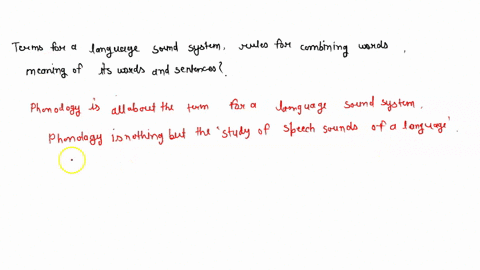 Terms for a language sound system, rules for combining words,
meaning of its words and sentences?.
Phonology is all about the term for a language sound system.
Phonology is nothing but the 'study of speech sounds of a language'.